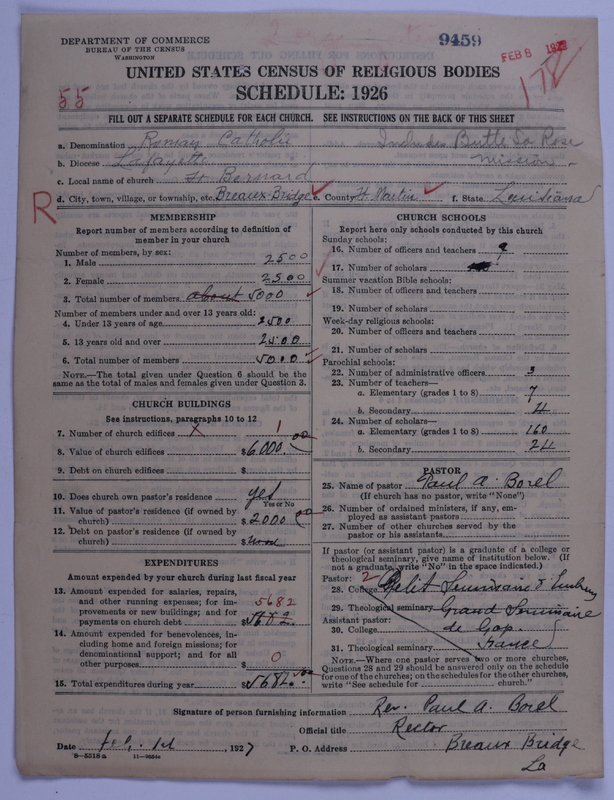 DEPARTMENT OF COMMERCE
BUREAU OF THE CENSUS
WASHINGTON
9459
FEB 8 1927
178
UNITED STATES CENSUS OF RELIGIOUS BODIES
55
SCHEDULE: 1926
FILL OUT A SEPARATE SCHEDULE FOR EACH CHURCH. SEE INSTRUCTIONS ON THE BACK OF THIS SHEET
a. Denomination Roman Catholic Includes Butte La Rose
b. Diocese Lafayette mission
c. Local name of church St Bernard
R d. City, town, village, or township, etc. Breaux Bridge e. County St Martin f. State Louisiana
MEMBERSHIP
Report number of members according to definition of
member in your church
Number of members, by sex:
1. Male 2500
2. Female 2500
3. Total number of members about 5000
Number of members under and over 13 years old:
4. Under 13 years of age 2500
5. 13 years old and over 2500
6. Total number of members 5000
NOTE.—The total given under Question 6 should be the
same as the total of males and females given under Question 3.
CHURCH BUILDINGS
See instructions, paragraphs 10 to 12
7. Number of church edifices X 1
8. Value of church edifices $6000.00
9. Debt on church edifices $
10. Does church own pastor's residence yes
Yes or No
11. Value of pastor's residence (if owned by
church) $2000 00
12. Debt on pastor's residence (if owned by
church) $
EXPENDITURES
Amount expended by your church during last fiscal year
13. Amount expended for salaries, repairs,
and other running expenses; for im- 5682
provements or new buildings; and for
payments on church debt $5682.
14. Amount expended for benevolences, in-
cluding home and foreign missions; for
denominational support; and for all 0
other purposes $
15. Total expenditures during year $5682.00
CHURCH SCHOOLS
Report here only schools conducted by this church
Sunday schools:
16. Number of officers and teachers 9
17. Number of scholars
Summer vacation Bible schools:
18. Number of officers and teachers
19. Number of scholars
Week-day religious schools:
20. Number of officers and teachers
21. Number of scholars
Parochial schools:
22. Number of administrative officers 3
23. Number of teachers—
a. Elementary (grades 1 to 8) 7
b. Secondary 4
24. Number of scholars—
a. Elementary (grades 1 to 8) 160
b. Secondary 24
PASTOR
25. Name of pastor Paul A. Borel
(If church has no pastor, write "None")
26. Number of ordained ministers, if any, em-
ployed as assistant pastors
27. Number of other churches served by the
pastor or his assistants
If pastor (or assistant pastor) is a graduate of a college or
theological seminary, give name of institution below. (If
not a graduate, write "No" in the space indicated.)
Pastor: 2
28. College Petit Seminaire d'Embrun
29. Theological seminary Grand Seminaire
Assistant pastor:
30. College de Gap.
31. Theological seminary France
NOTE.—Where one pastor serves two or more churches,
Questions 28 and 29 should be answered only on the schedule
for one of the churches; on the schedules for the other churches,
write "See schedule for church."
Signature of person furnishing information Rev. Paul A. Borel
Official title Rector
Date Feb. 1st 1927 P. O. Address Breaux Bridge
8—5518 a La